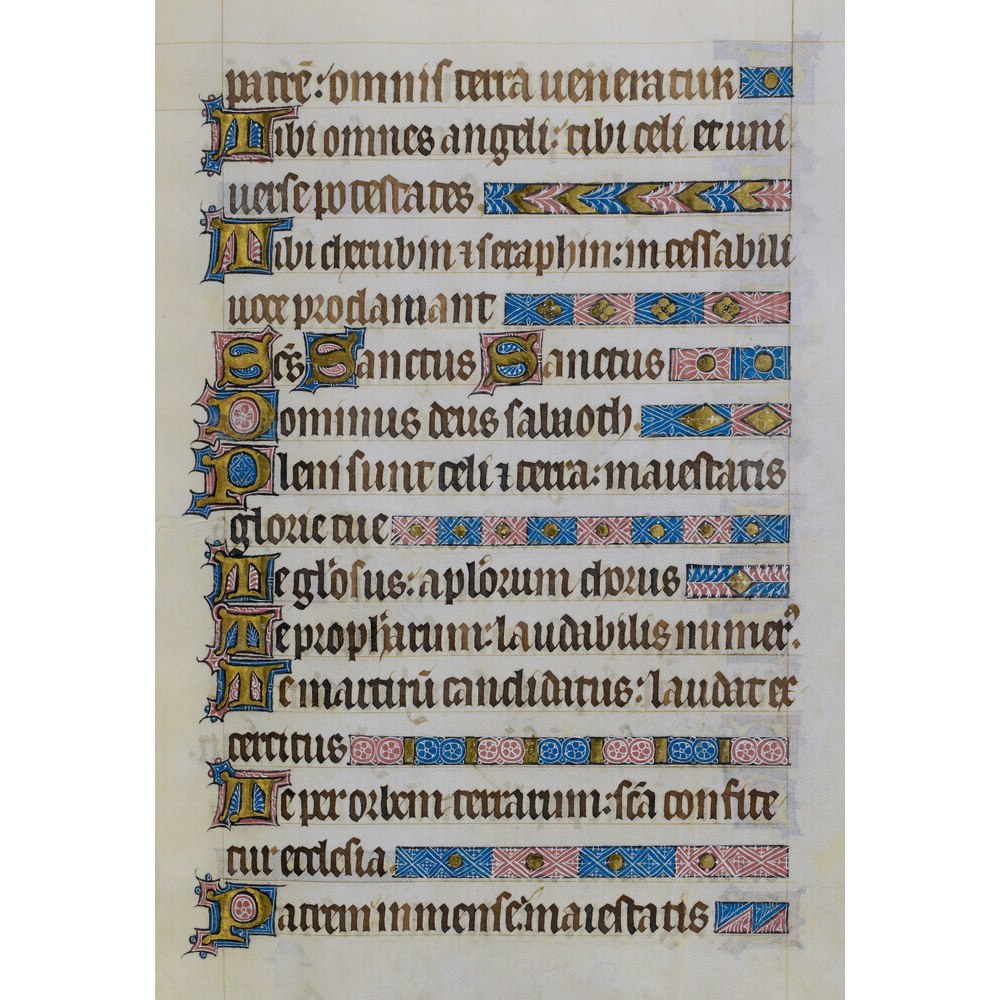 patrē: omnis terra ueneratur
Tibi omnes angeli: tibi celi et uni
uerse potestates
Tibi cherubin ⁊ seraphin: incessabili
uoce proclamant
Scs̄ Sanctus Sanctus
Dominus deus sabaoth.
Pleni sunt celi ⁊ terra: maiestatis
glorie tue
Te gl'osus: apl'orum chorus
Te prophetarum: laudabilis numer᷒.
Te martirū candidatus: laudat ex
ercitus
Te per orbem terrarum: sc̄a confite
tur ecclesia
Patrem inmense: maiestatis